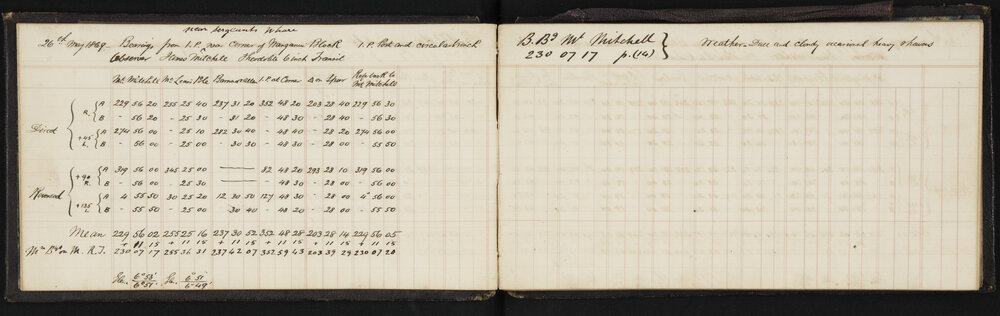 near Sergeants Whare
26th May 1869 Bearings from I.P. near Corner of Block I.P. Post and circular trench
Observer Mitchell Theodolite 6 inch Transit
Mt Mitchell Mt Lewis Pole I.P. at Corner Δ on Spur Rep back to Mt Mitchell
R. A 229 56 20 255 25 40 237 31 20 352 48 20 203 28 40 229 56 30
B - 56 20 - 25 30 - 31 20 - 48 30 - 28 40 - 56 30
Direct +45 L. A 274 56 00 - 25 10 282 30 40 - 48 40 - 28 20 274 56 00
B - 56 00 - 25 00 - 30 30 - 48 30 - 28 00 - 55 50
+90 R. A 319 56 00 345 25 00 82 48 20 293 28 10 319 56 00
B - 56 00 - 25 30 - 48 30 - 28 00 - 56 00
Reversed +135 L A 4 55 50 30 25 20 12 30 50 127 48 30 - 28 00 4 56 00
B - 55 50 - 25 00 30 40 - 48 20 - 28 00 - 55 50
Mean 229 56 02 255 25 16 237 30 52 352 48 28 203 28 14 229 56 05
+ 11 15 + 11 15 + 11 15 + 11 15 + 11 15 + 11 15
Mn Bgs on M. R.T. 230 07 17 255 36 31 237 42 07 352 59 43 203 39 29 230 07 20
6° 53' 6° 51'
6° 51' 6 49'
B. Bg Mt Mitchell
230 07 17 p. (14)
Weather - Dull and cloudy occasional heavy showers